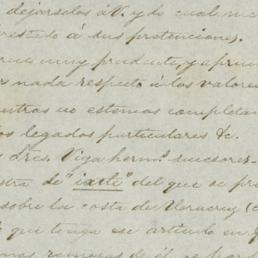 dejarselos á V. y lo cual me
á sus pretenciones.
muy prudente, y apru
nada respecto á los valores
no estamos completa
legados particulares &c.
Sres. Viya hermos. sucesores
de "ixtle" del que se pr
sobre la costa de Veracruz (c
que tenga ese artículo en
remesas de él se